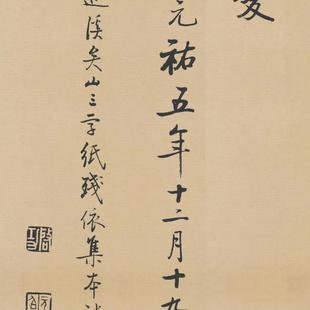 元祐五年十二月十九
溪矣山三字紙殘依集本